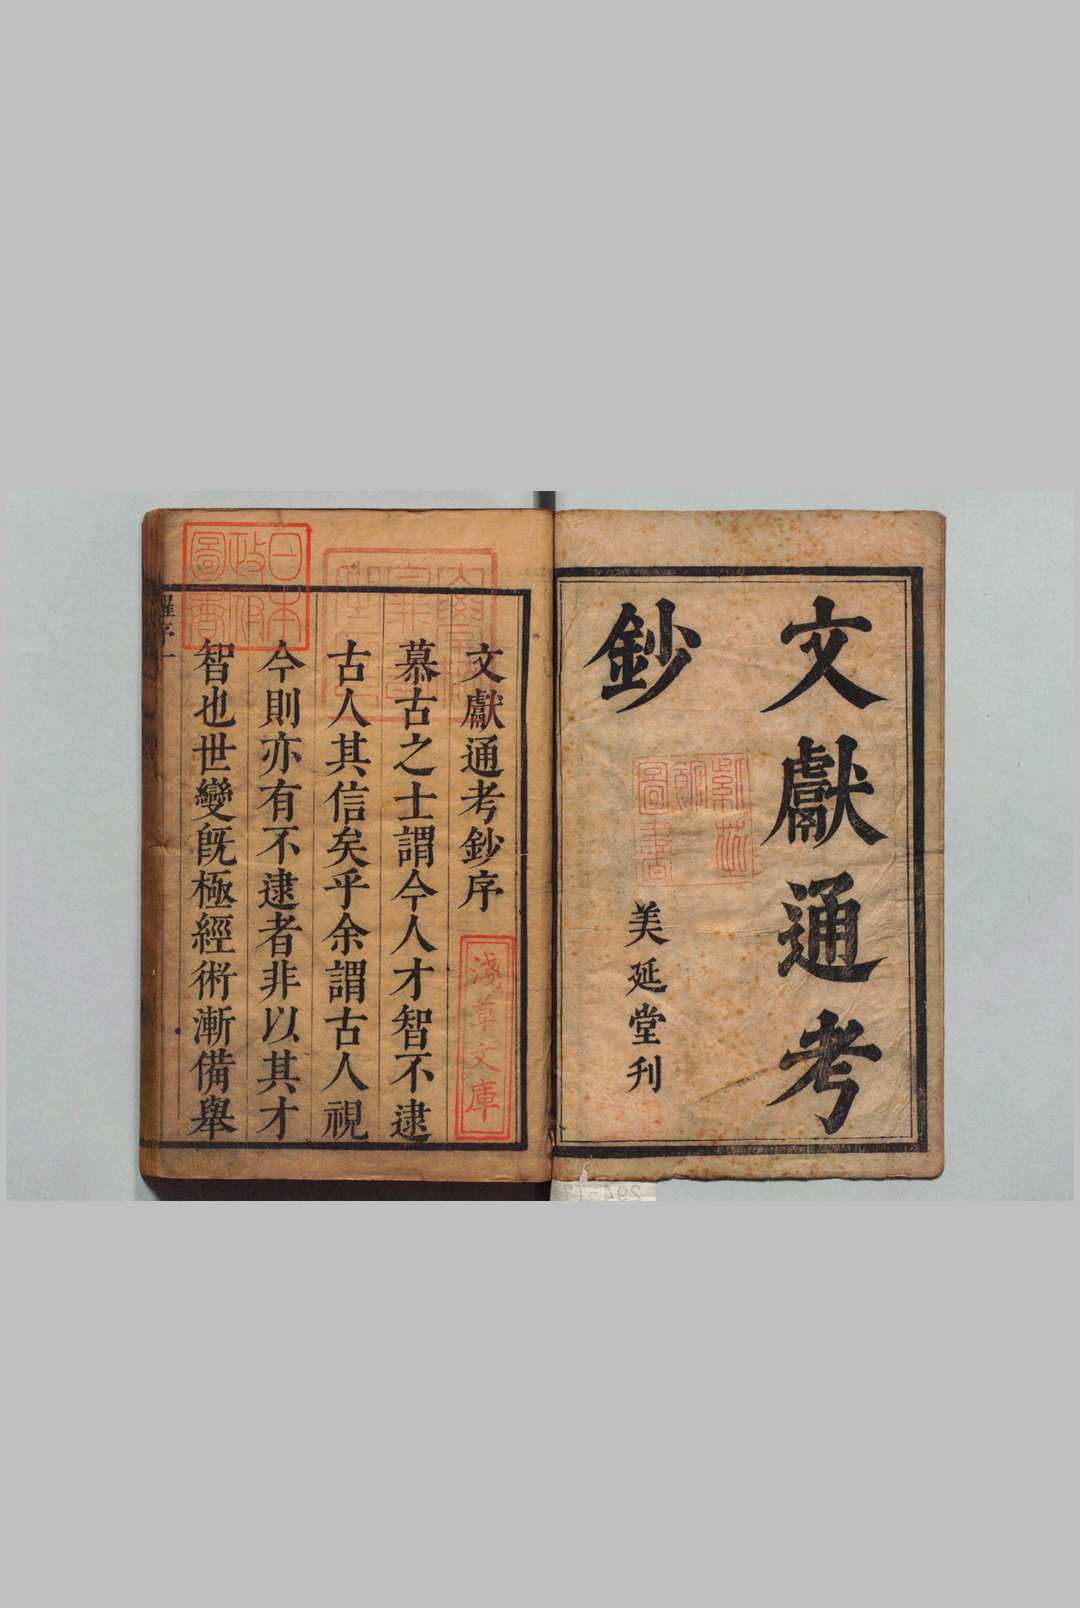 文獻通考
鈔
美延堂刊
文獻通考鈔序
淺草文庫
慕古之士謂今人才智不逮
古人其信矣乎余謂古人視
今則亦有不逮者非以其才
智也世變旣極經術漸備舉
日本
政府
圖書